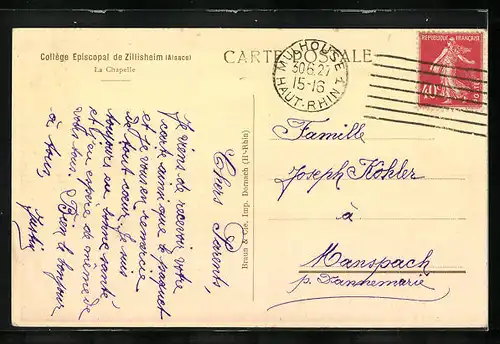 Collège Episcopal de Zillisheim (Alsace)
La Chapelle
CARTE POSTALE
MULHOUSE
30.6.27
15-16
HAUT-RHIN
REPUBLIQUE FRANÇAISE
40c
Braun & Cie, Imp. Dornach (Ht-Rhin)
Chers Parents,
Je viens de recevoir votre
carte ainsi que le paquet
et je vous en remercie
de tout cœur. Je suis
toujours en bonne santé
et j'en espère de même de
vous tous. Bien le bonjour
à tous,
Famille
Joseph Kohler
à
Manspach
p. Dannemarie